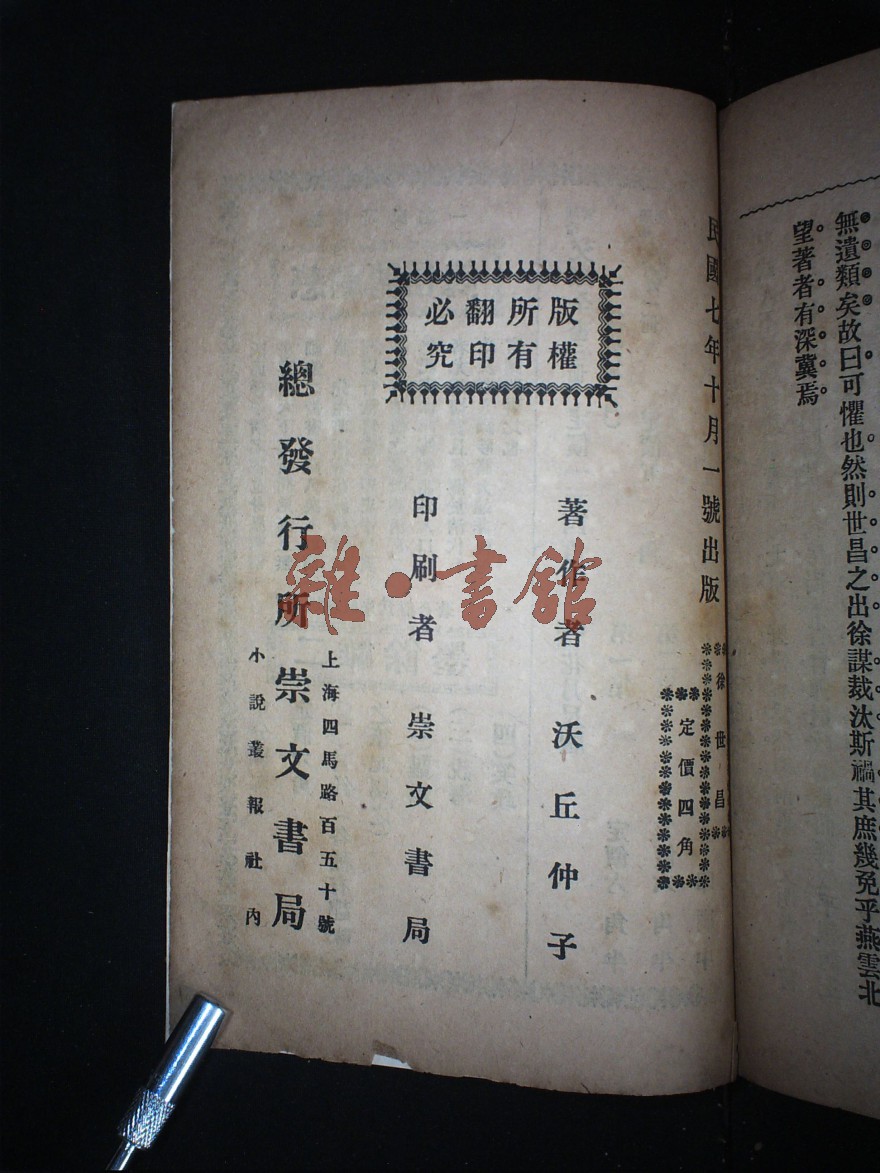 無遺類矣故曰可懼也然則世昌之出徐謀裁汰斯禍其庶幾免乎燕雲北
望著者有深冀焉
民國七年十月一號出版
徐世昌
定價四角
版權所有翻印必究
著作者 沃丘仲子
印刷者 崇文書局
總發行所崇文書局
上海四馬路百五十號
小說叢報社內
雜·書館